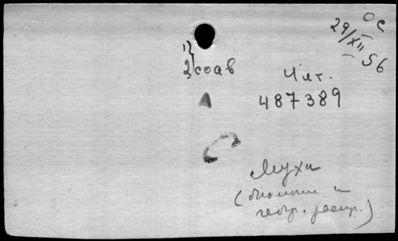 ОС
29/XII 56
1)
2) соав
Чит.
487389
А
С
Муха
(биолог и
геогр. распр.)